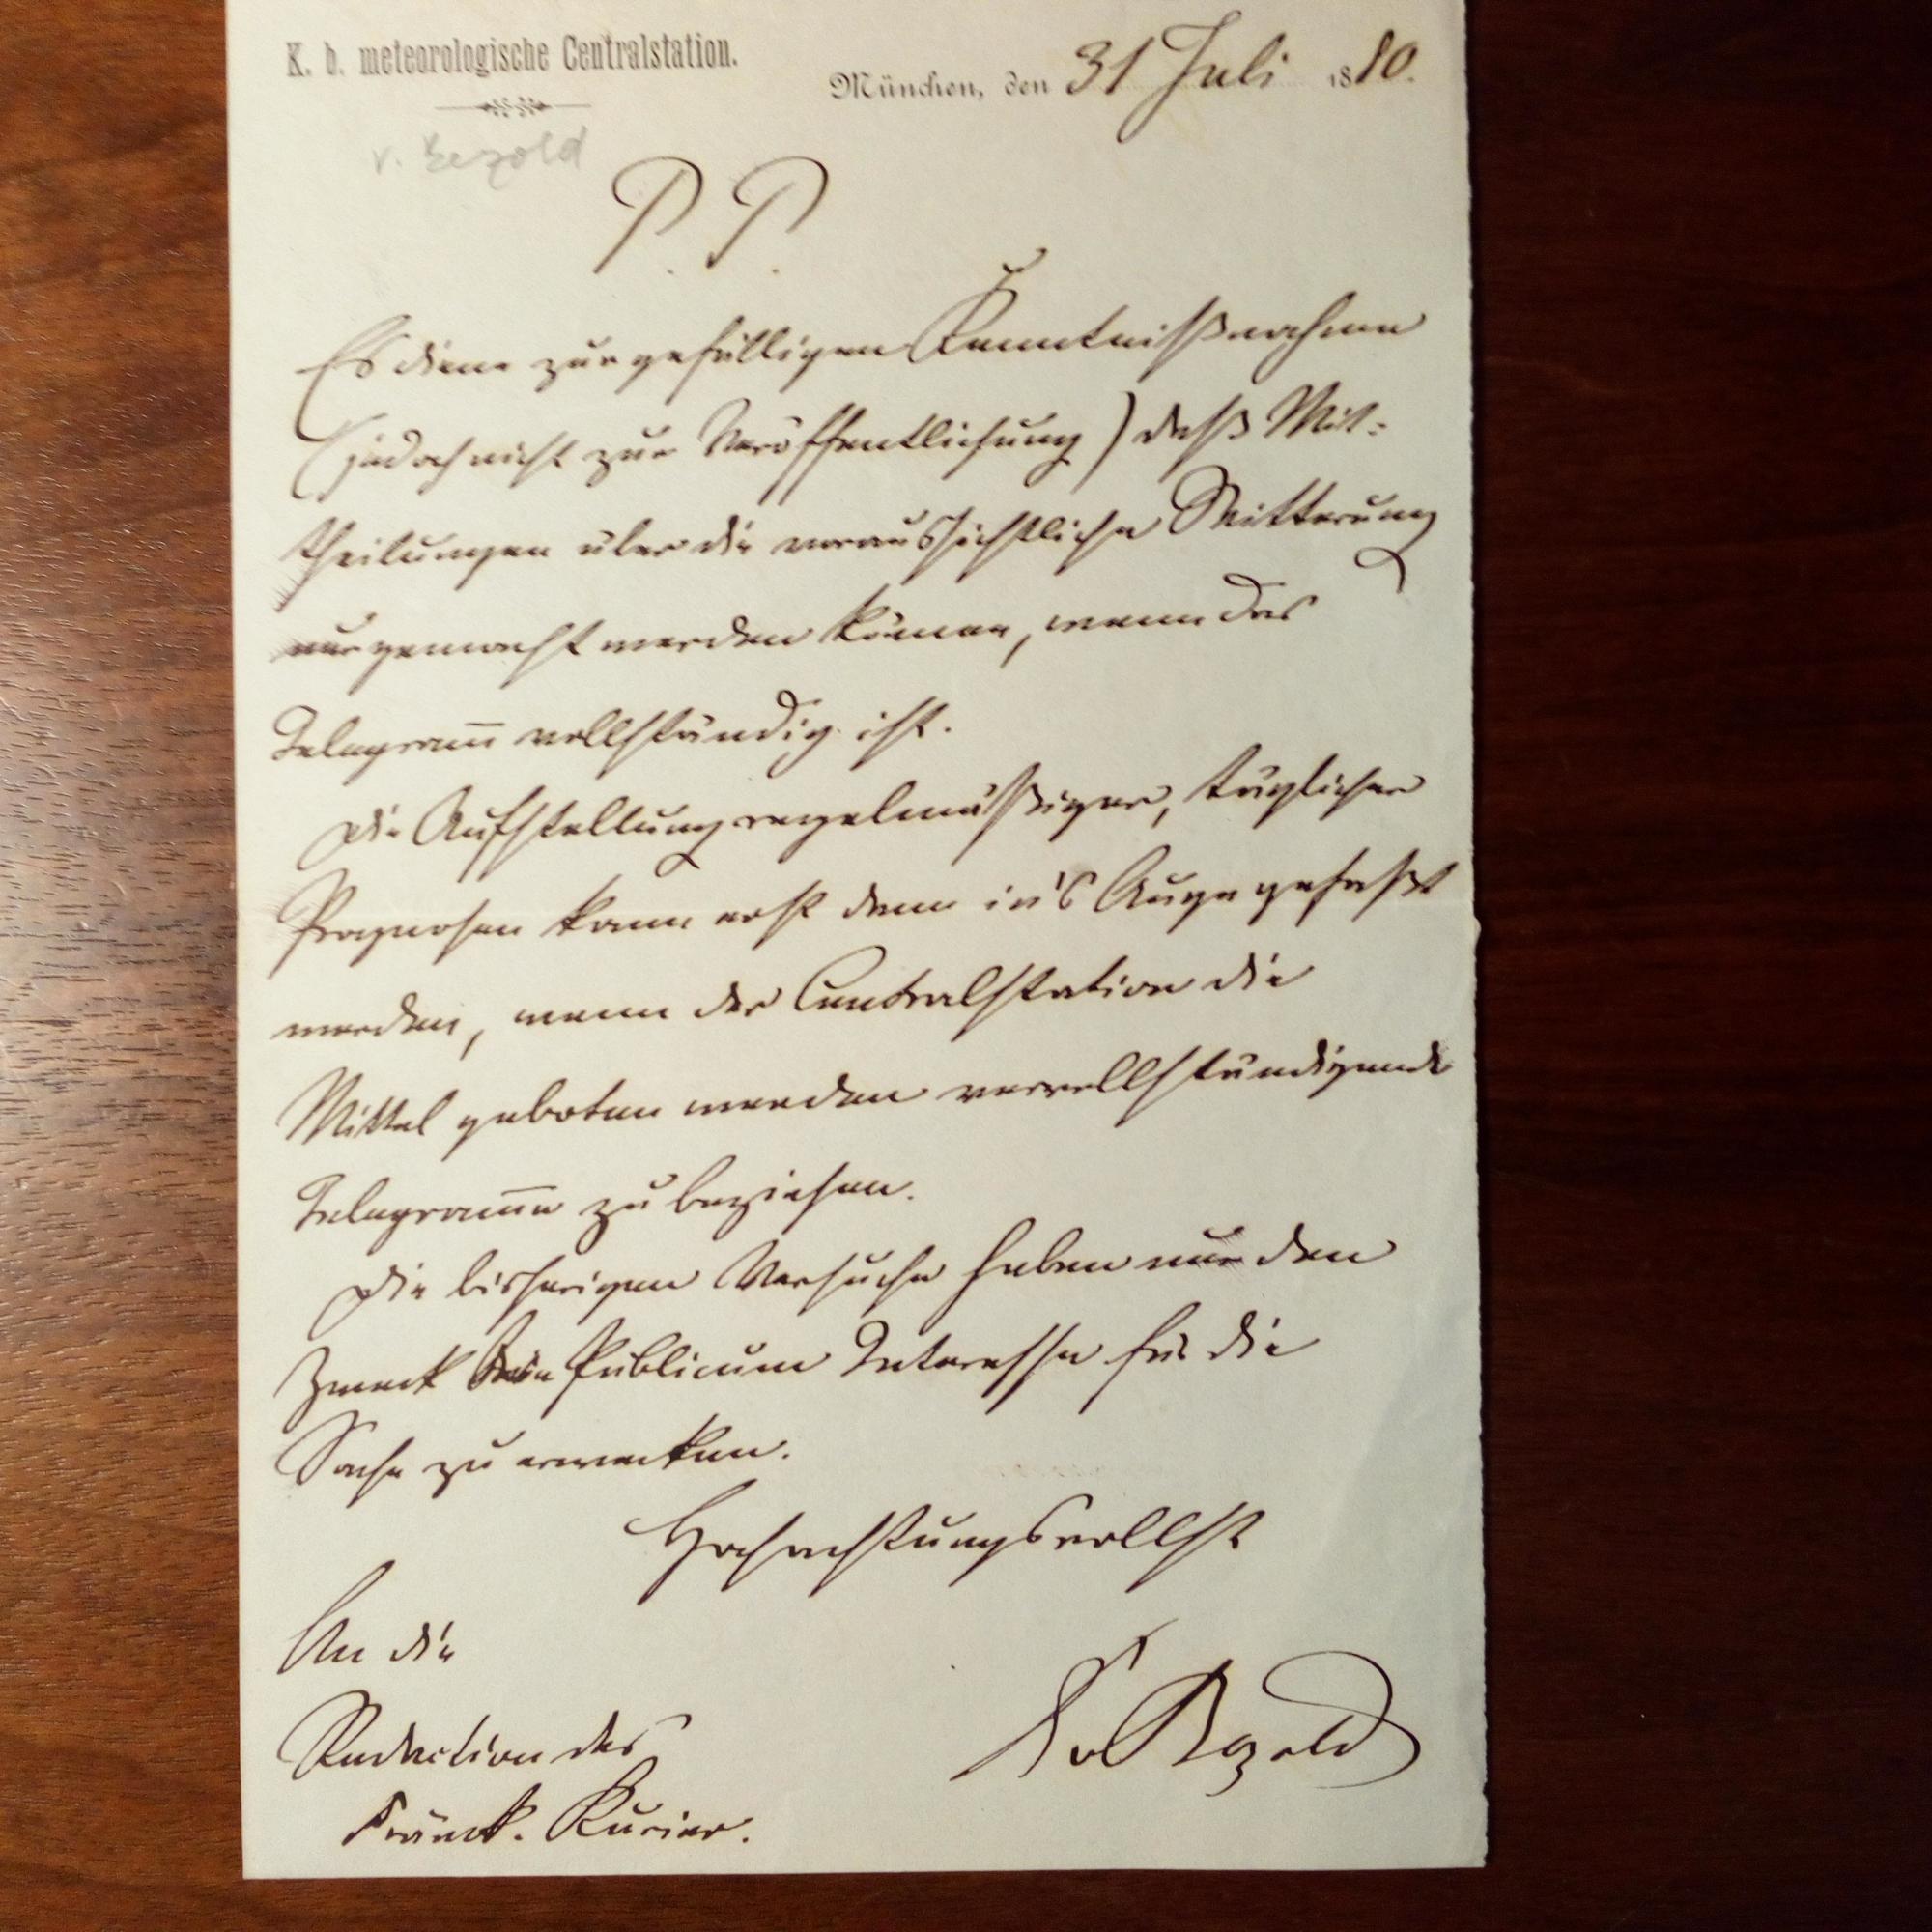 K. b. meteorologische Centralstation.
München, den 31 Juli 1880.
v. Bezold
P. P.
Es diene zur gefälligen Kenntnißnahme
(jedoch nicht zur Veröffentlichung) daß Mit-
theilungen über die voraussichtliche Witterung
nur gemacht werden können, wenn das
Telegram̅ vollständig ist.
Die Aufstellung regelmäßiger, täglicher
Prognosen kann erst dann in's Auge gefaßt
werden, wenn der Centralstation die
Mittel geboten werden vervollständigende
Telegram̅e zu beziehen.
Die bisherigen Versuche haben nur den
Zweck Publicum Interesse für die
Sache zu erwecken.
Hochachtungsvollst
An die
Redaction des
Fränk. Kurier.
v Bezold